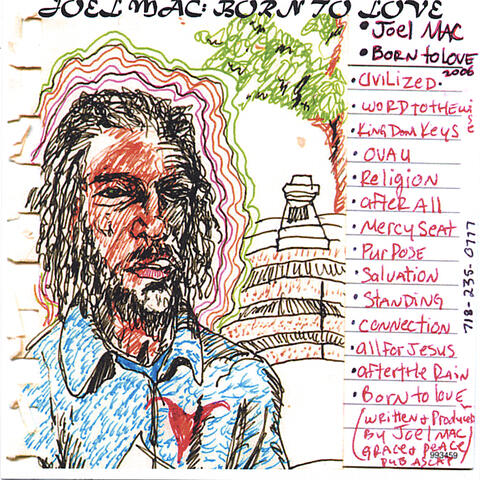 JOEL MAC: BORN TO LOVE
• Joel MAC
• BORN to LOVE
2006
• CIVILIZED.
• WORD TO THE Wise
• King Dom Keys
• OVAU
• Religion
• after All
• Mercy Seat
• PURPOSE
• Salvation
• STANDING
• CONNECTION
• all For Jesus
• after the RAIN
• BORN to love
(Written & Produced
By Joel MAC
GRACE & PEACE)
PUB ASCAP
993459
718-235-0777